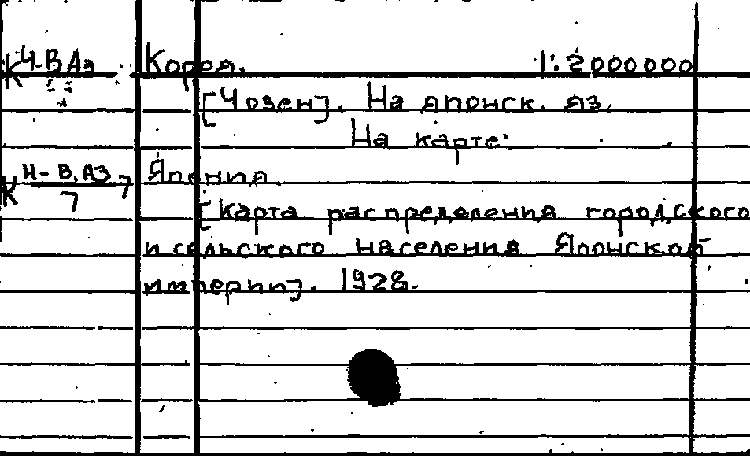 К Ч-ВАз Корея. 1:2000000
[Чозен]. На японск. яз.
На карте:
К Н-В.АЗ 7 Япония.
7
[Карта распределения городского
и сельского населения Японской
империи]. 1928.